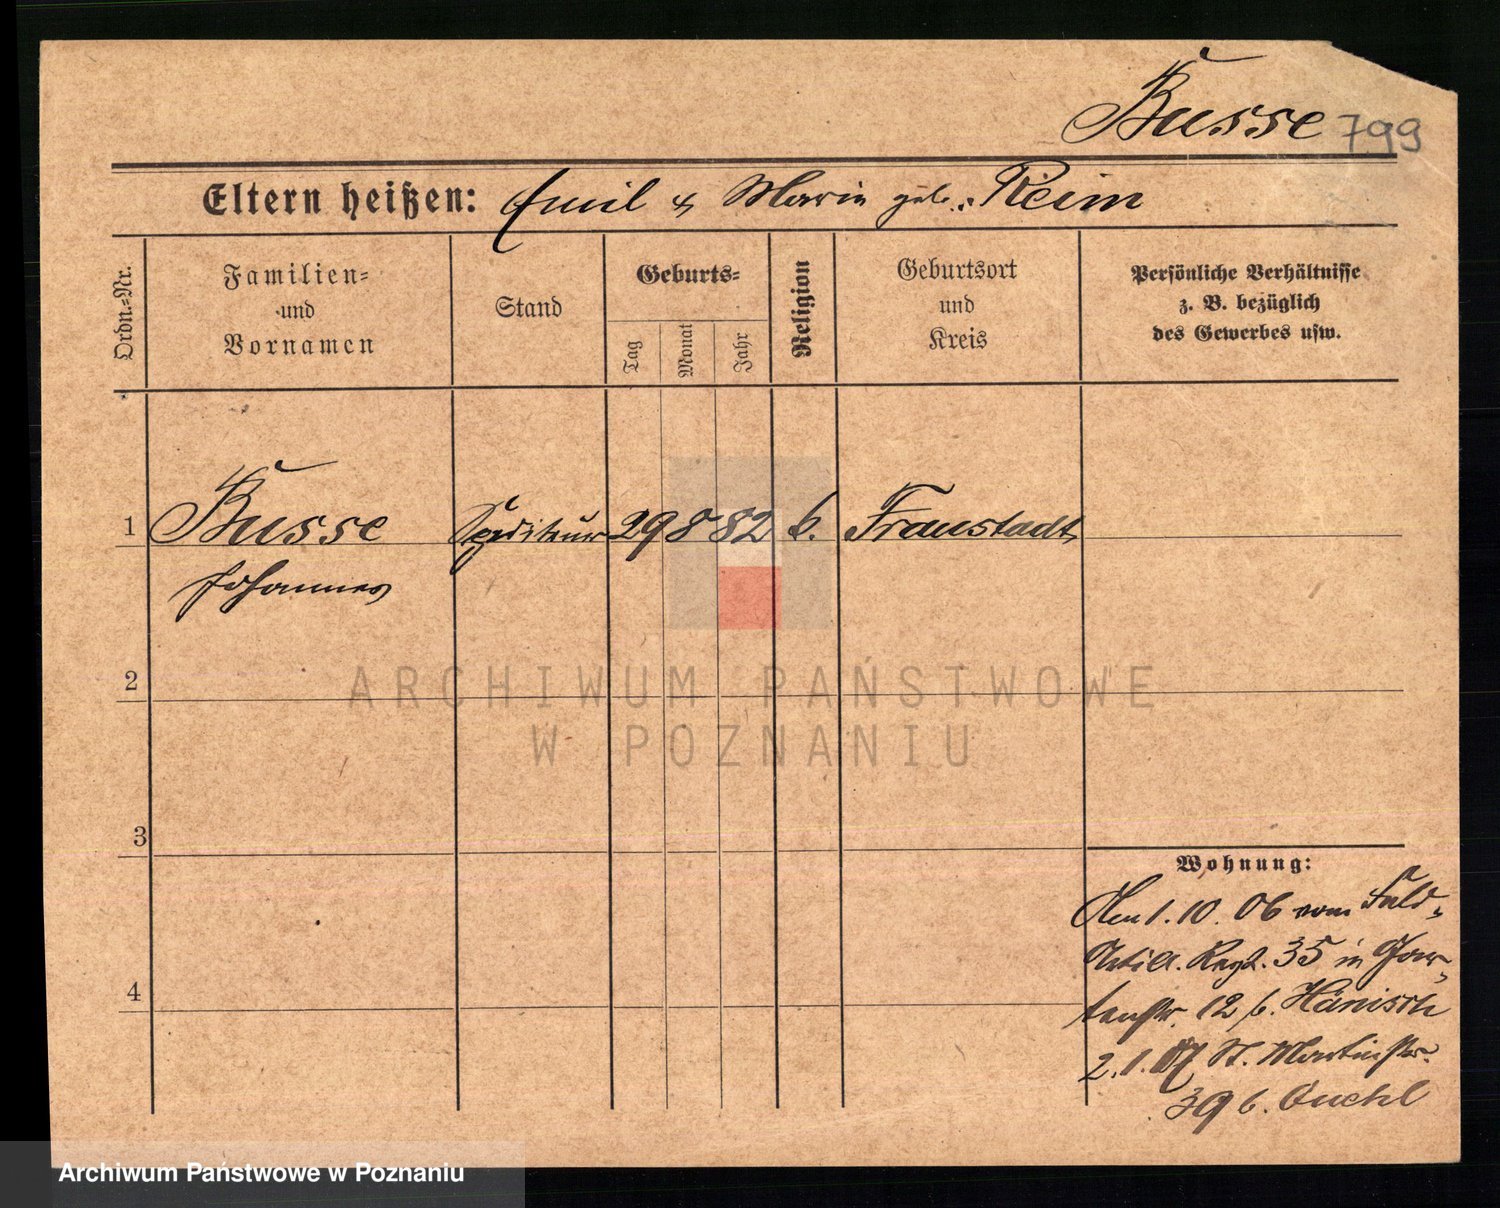 Busse 799
Eltern heißen: Emil & Marie geb. Reim
Ordn.-Nr.
Familien-
und
Vornamen
Stand
Geburts-
Tag
Monat
Jahr
Religion
Geburtsort
und
Kreis
Persönliche Verhältnisse
z. B. bezüglich
des Gewerbes usw.
1 Busse Spediteur 29 8 82 Fraustadt
Johannes
2
ARCHIWUM PAŃSTWOWE
W POZNANIU
3
4
Wohnung:
Den 1. 10. 06 vom Feld-
Artill. Regt. 35 in Gar-
tenstr. 12 b. Hänisch
2. 1. 07 St. Martinstr.
39 b.
Archiwum Państwowe w Poznaniu